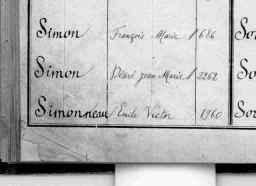 Simon François Marie 1686 So
Simon Désiré Jean Marie 2262 So
Simonneau Emile Victor 1960 So